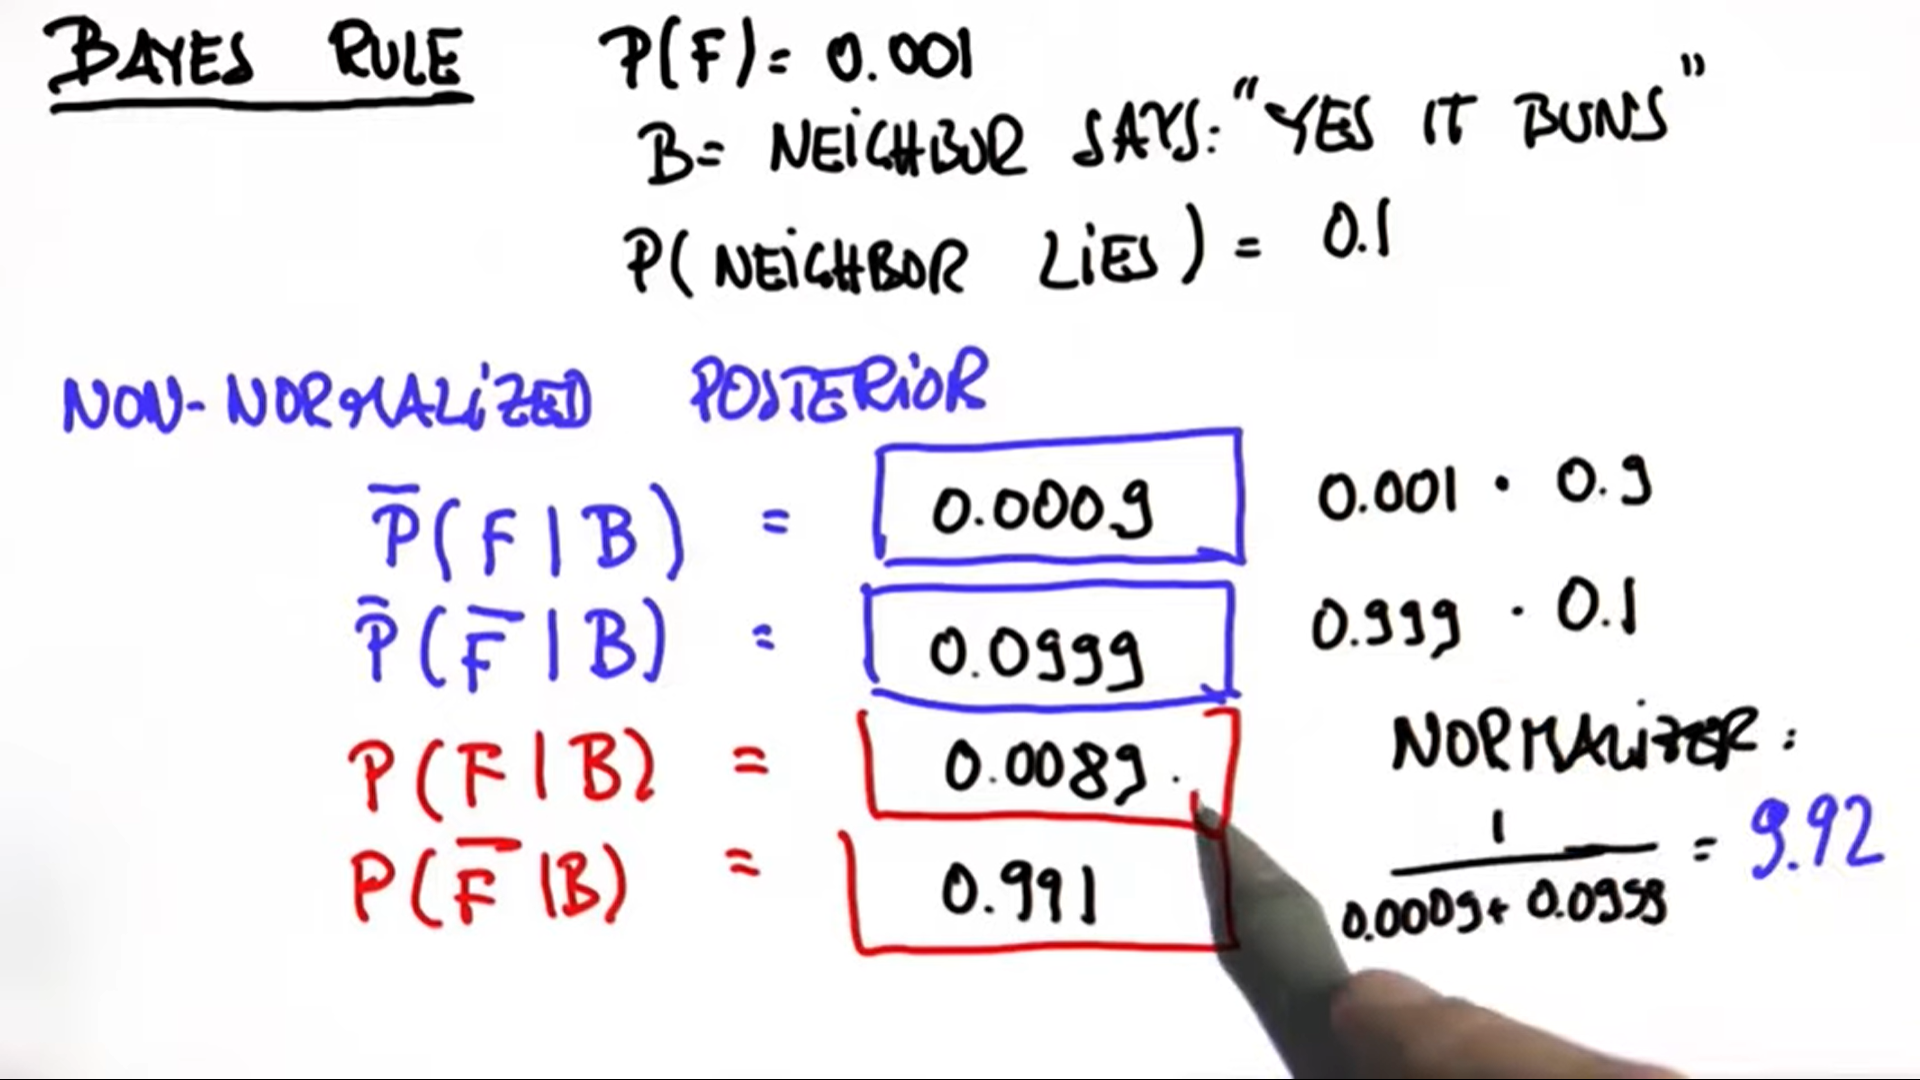 BAYES RULE P(F) = 0.001
B = NEIGHBOR SAYS: "YES IT BUNS"
P(NEIGHBOR LIES) = 0.1
NON-NORMALIZED POSTERIOR
P̅(F|B) = 0.0009 0.001 · 0.9
P̅(F̅|B) = 0.0999 0.999 · 0.1
P(F|B) = 0.0089 .
NORMALIZER:
P(F̅|B) = 0.991
1 / 0.0009 + 0.0999 = 9.92